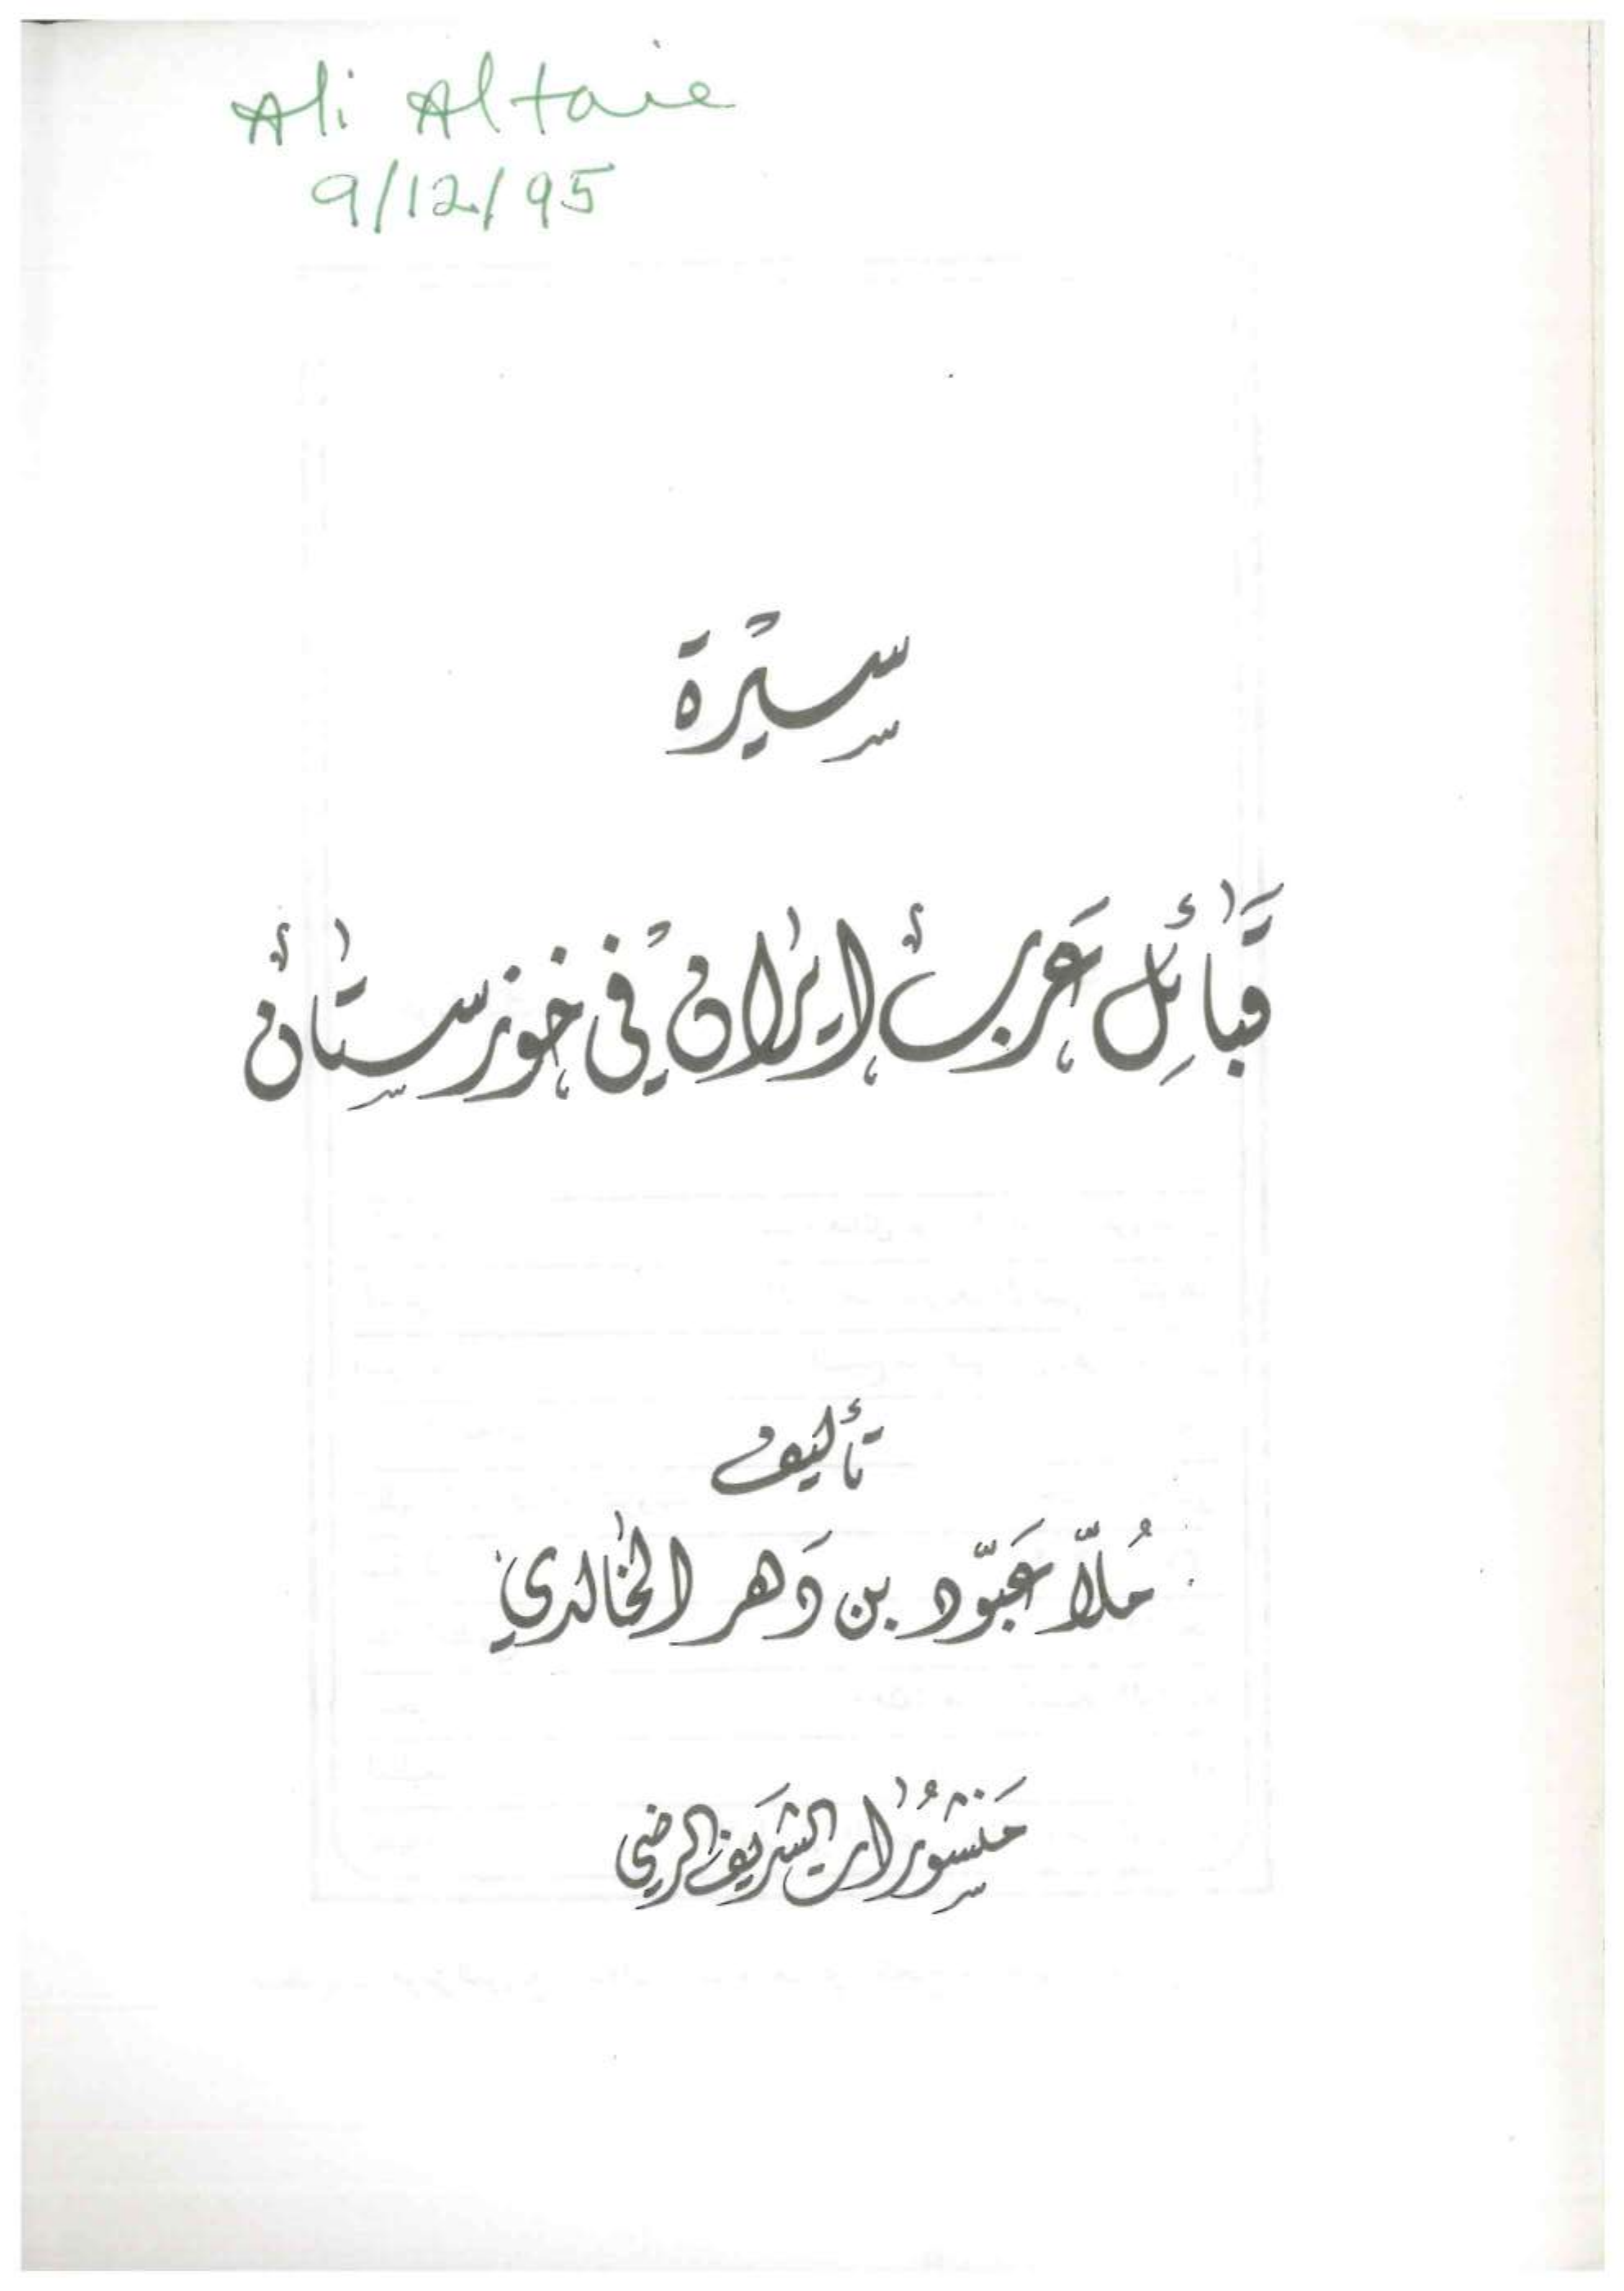 Ali Altaie
9/12/95
سيرة
قبائل عرب ايران في خوزستان
تأليف
ملا عبود بن دهر الخالدي
منشورات الشريف الرضي